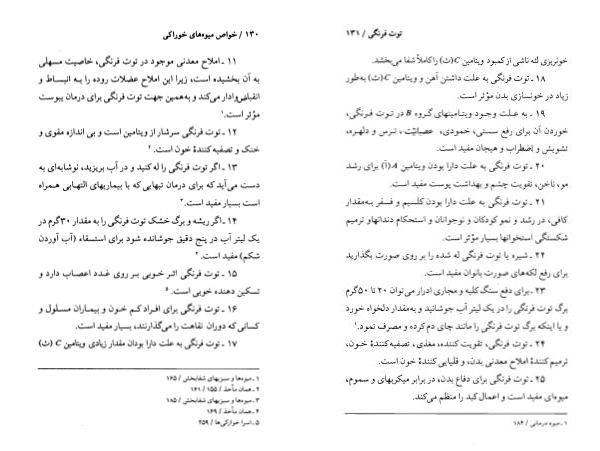 ۱۳۰ / خواص میوه‌های خوراکی
۱۱ ـ املاح معدنی موجود در توت فرنگی، خاصیت مسهلی
به آن بخشیده است، زیرا این املاح عضلات روده را به انبساط و
انقباض وادار می‌کند و به‌همین جهت توت فرنگی برای درمان یبوست
مؤثر است.۱
۱۲ ـ توت فرنگی سرشار از ویتامین است و بی اندازه مقوی و
خنک و تصفیه کنندهٔ خون است.۲
۱۳ ـ اگر توت فرنگی را له کنید و در آب بریزید، نوشابه‌ای به
دست می‌آید که برای درمان تبهایی که با بیماریهای التهابی همراه
است بسیار مفید است.۳
۱۴ ـ اگر ریشه و برگ خشک توت فرنگی را به مقدار ۳۰گرم در
یک لیتر آب در پنج دقیق جوشانده شود برای استسقاء (آب آوردن
شکم) مفید است.۴
۱۵ ـ توت فرنگی اثر خوبی بر روی غدد اعصاب دارد و
تسکین دهنده خوبی است.۵
۱۶ ـ توت فرنگی برای افراد کم خون و بیماران مسلول و
کسانی که دوران نقاهت را می‌گذارنند، بسیار مفید است.
۱۷ ـ توت فرنگی به علت دارا بودان مقدار زیادی ویتامین C (ث)
۱ ـ میوه‌ها و سبزیهای شفابخش / ۱۶۵
۲ ـ همان مأخذ / ۱۵۵ / ۱۶۱
۳ ـ میوه‌ها و سبزیهای شفابخش / ۱۸۵
۴ ـ همان مأخذ / ۱۶۹
۵ ـ اسرا خوارکی‌ها / ۲۵۹
توت فرنگی / ۱۳۱
خونریزی لثه ناشی از کمبود ویتامین C(ث) را کاملاً شفا می‌بخشد.
۱۸ ـ توت فرنگی به علت داشتن آهن و ویتامین C(ث) به‌طور
زیاد در خونسازی بدن مؤثر است.
۱۹ ـ به علت وجود ویتامینهای گروه B در توت فرنگی،
خوردن آن برای رفع سستی، خمودی، عصبانیّت، ترس و دلهره،
تشویش و اضطراب و هیجان مفید است.
۲۰ ـ توت فرنگی به علت دارا بودن ویتامین A(آ) برای رشد
مو، ناخن، تقویت چشم و بهداشت پوست مفید است.
۲۱ ـ توت فرنگی به علت دارا بودن کلسیم و فسفر به‌مقدار
کافی، در رشد و نمو کودکان و نوجوانان و استحکام دندانهاو ترمیم
شکستگی استخوانها بسیار مؤثر است.
۲۲ ـ شیره یا توت فرنگی له شده را بر روی صورت بگذارید
برای رفع لکه‌های صورت بانوان مفید است.
۲۳ ـ برای دفع سنگ کلیه و مجاری ادرار می‌توان ۲۰ تا ۵۰گرم
برگ توت فرنگی را در یک لیتر آب جوشانید و به‌مقدار دلخواه خورد
و یا اینکه برگ توت فرنگی را مانند چای دم کرده و مصرف نمود.۱
۲۴ ـ توت فرنگی، تقویت کننده، مغذی، تصفیه کنندهٔ خون،
ترمیم کنندهٔ املاح معدنی بدن، و قلیایی کنندهٔ خون است.
۲۵ ـ توت فرنگی برای دفاع بدن، در برابر میکربهای و سموم،
میوه‌ای مفید است و اعمال کبد را منظم می‌کند.
۱ ـ میوه درمانی / ۱۸۴